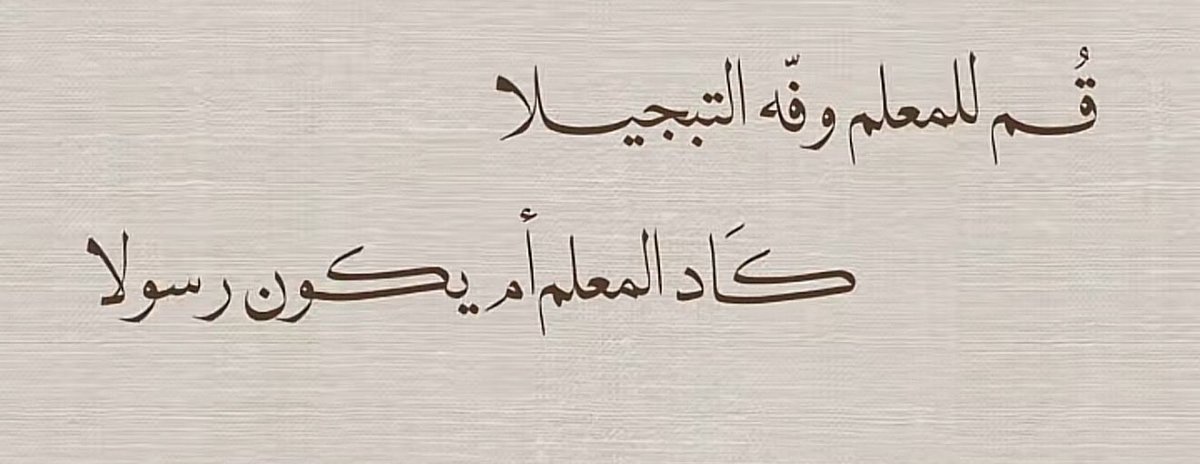 قُم للمعلم وفّه التبجيلا
كَاد المعلم أم يكون رسولا